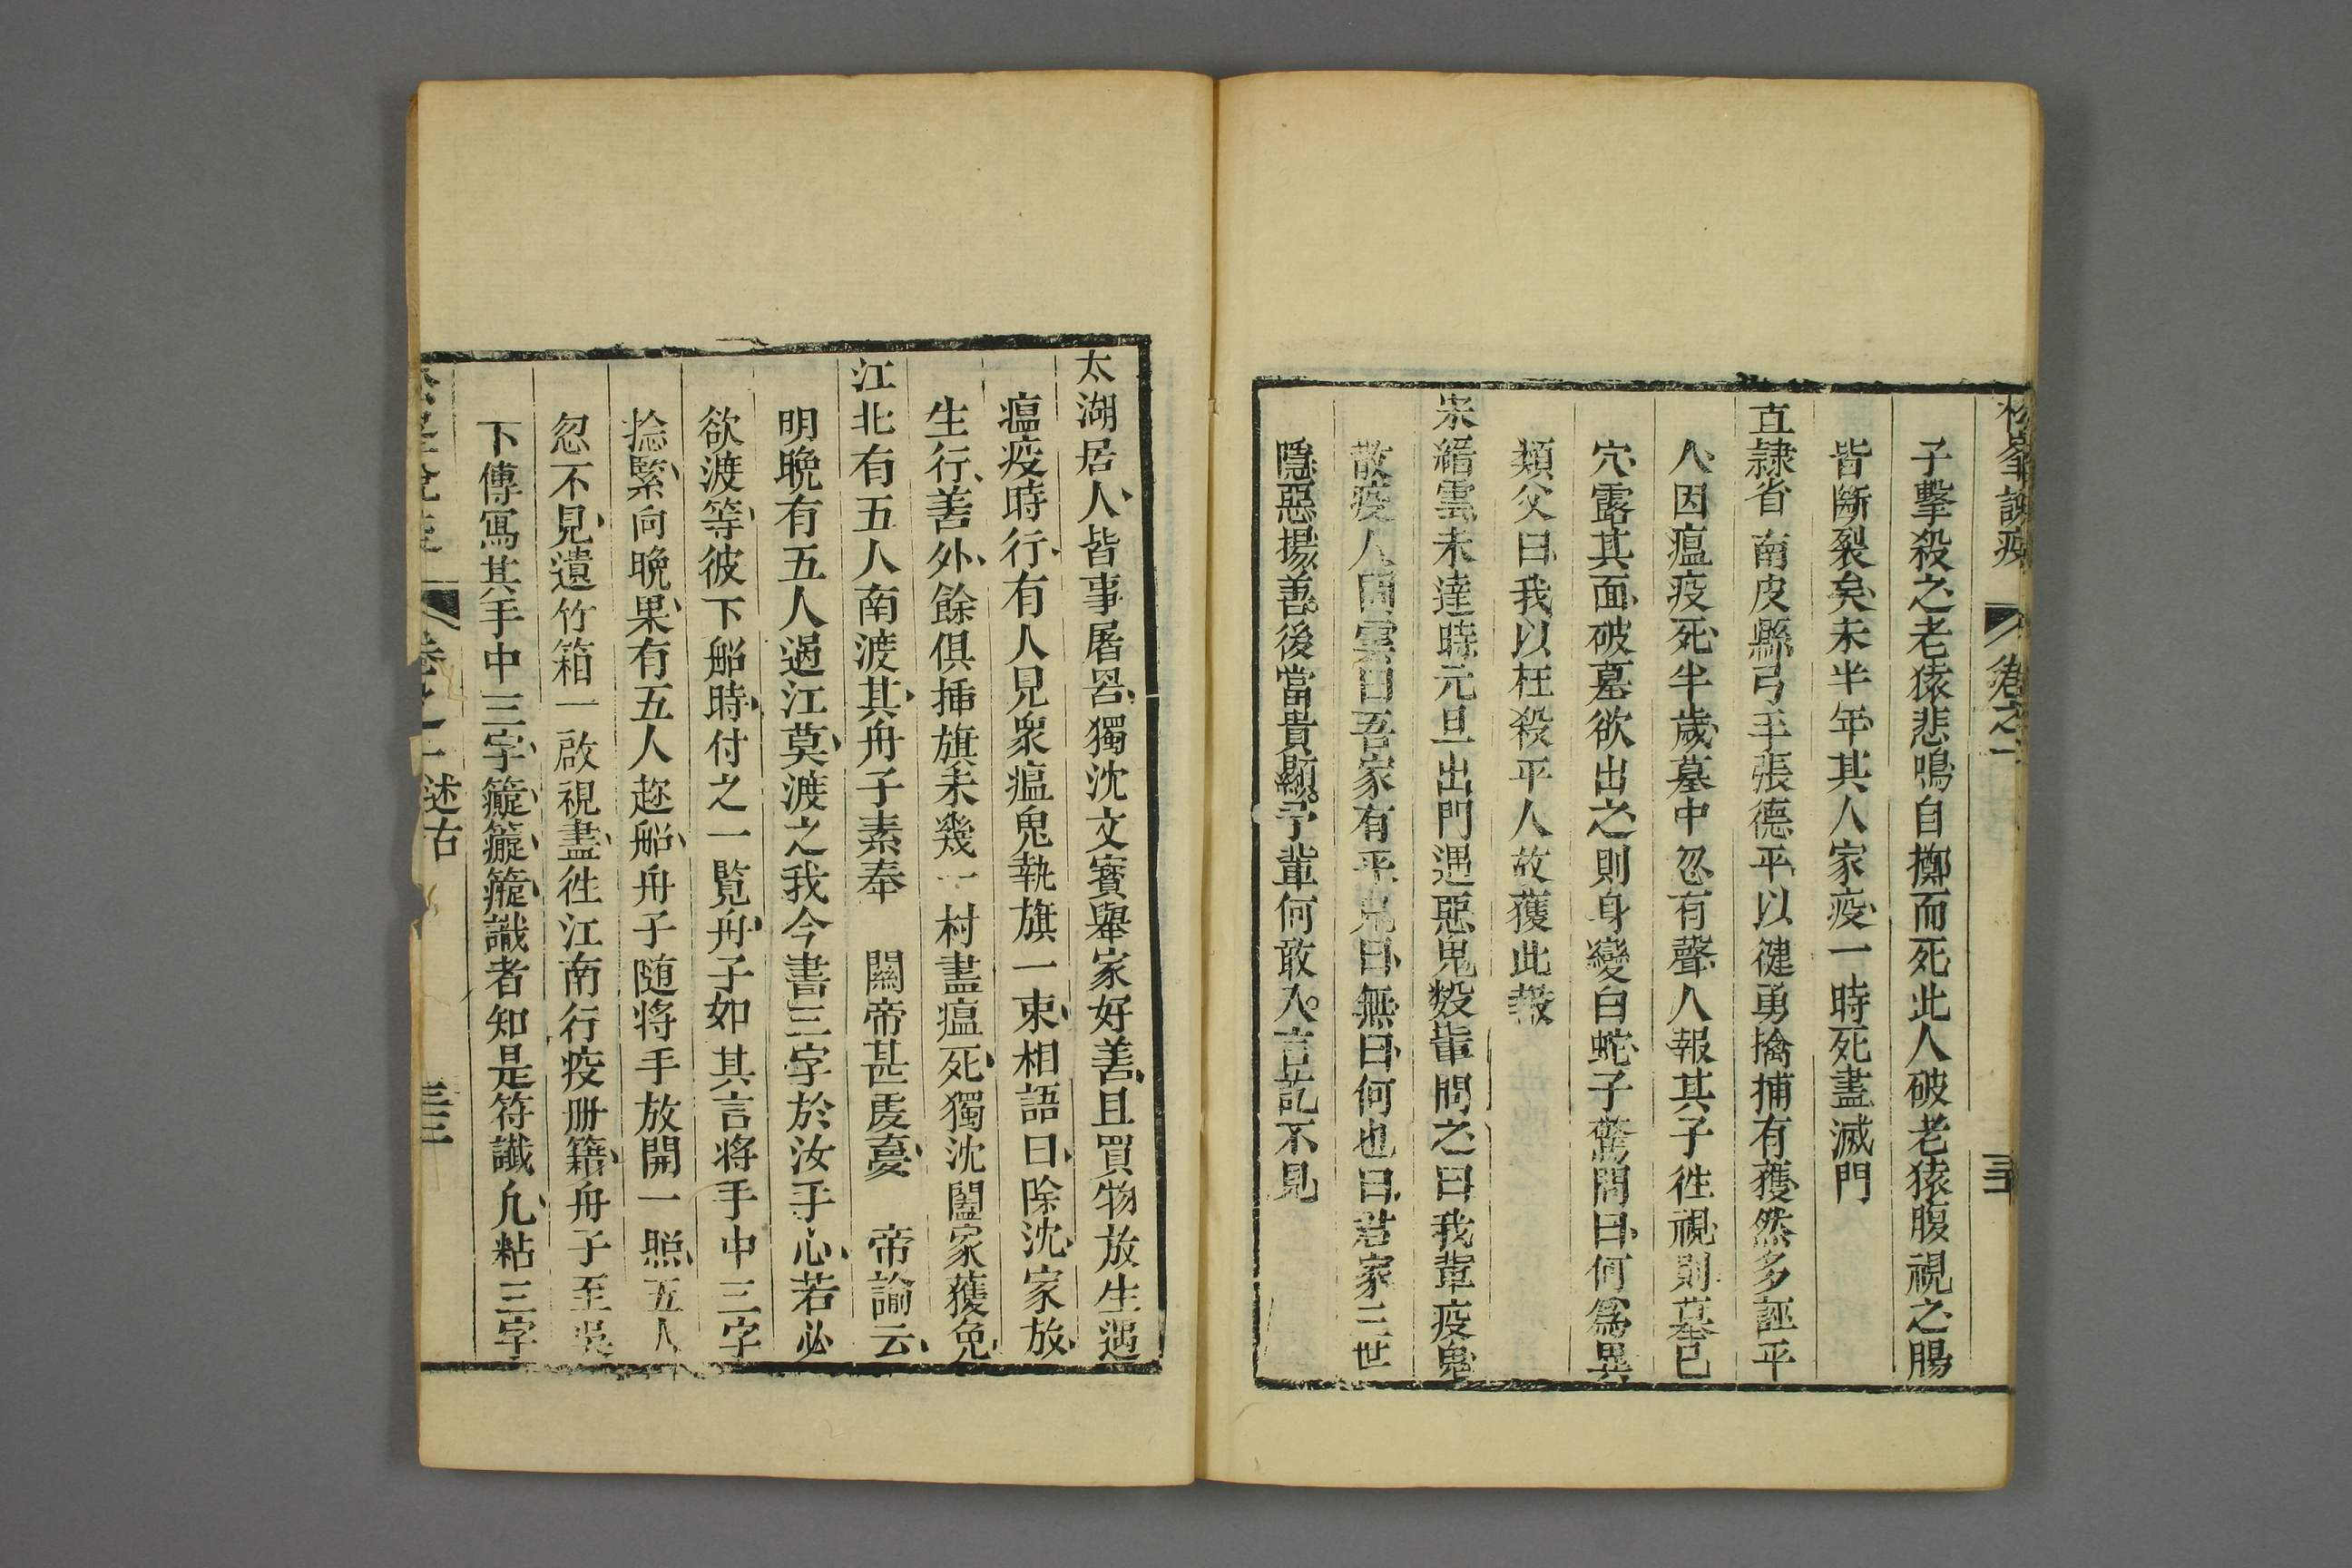 松峯說疫 卷之一 三二
子擊殺之老猿悲鳴自擲而死此人破老猿腹視之腸
皆斷裂矣未半年其人家疫一時死盡滅門
直隸省南皮縣弓手張德平以健勇擒捕有獲然多誣平
人因瘟疫死半歲墓中忽有聲人報其子徃視則墓已
穴露其面破墓欲出之則身變白蛇子驚問曰何爲異
類父曰我以枉殺平人故獲此報
宋縉雲未達時元旦出門遇惡鬼數輩問之曰我輩疫鬼
散疫人間雲曰吾家有乎鬼曰無曰何也曰君家三世
隱惡揚善後當貴顯予輩何敢入言訖不見
太湖居人皆事屠罟獨沈文寳舉家好善且買物放生遇
瘟疫時行有人見衆瘟鬼執旗一束相語曰除沈家放
生行善外餘俱揷旗未幾一村盡瘟死獨沈闔家獲免
江北有五人南渡其舟子素奉 關帝甚虔憂 帝諭云
明晩有五人過江莫渡之我今書三字於汝手心若必
欲渡等彼下船時付之一覧舟子如其言将手中三字
捻緊向晩果有五人趂船舟子随将手放開一照五人
忽不見遺竹箱一啟視盡徃江南行疫册籍舟子至吳
下傳寫其手中三字䉠䉡䉢識者知是符讖凢粘三字
卷之一 述古 三三